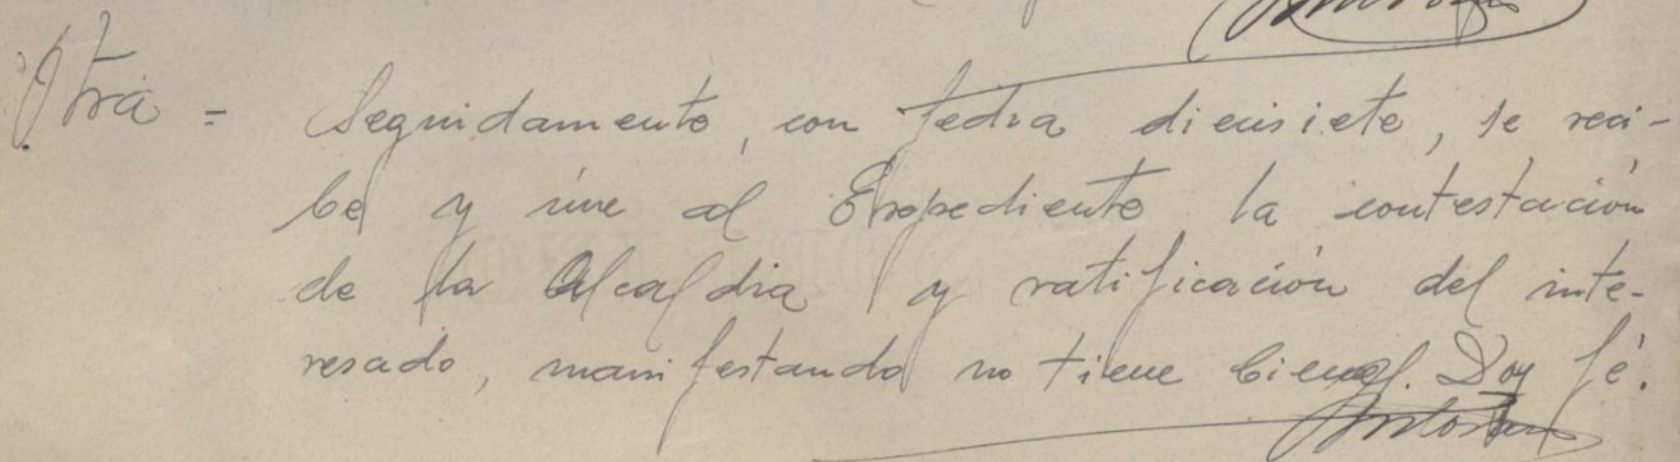 Otra = Seguidamente, con fecha diecisiete, se reci-
be y úne al Expediente la contestación
de la Alcaldia y ratificación del inte-
resado, manifestando no tiene bienes. Doy fé.